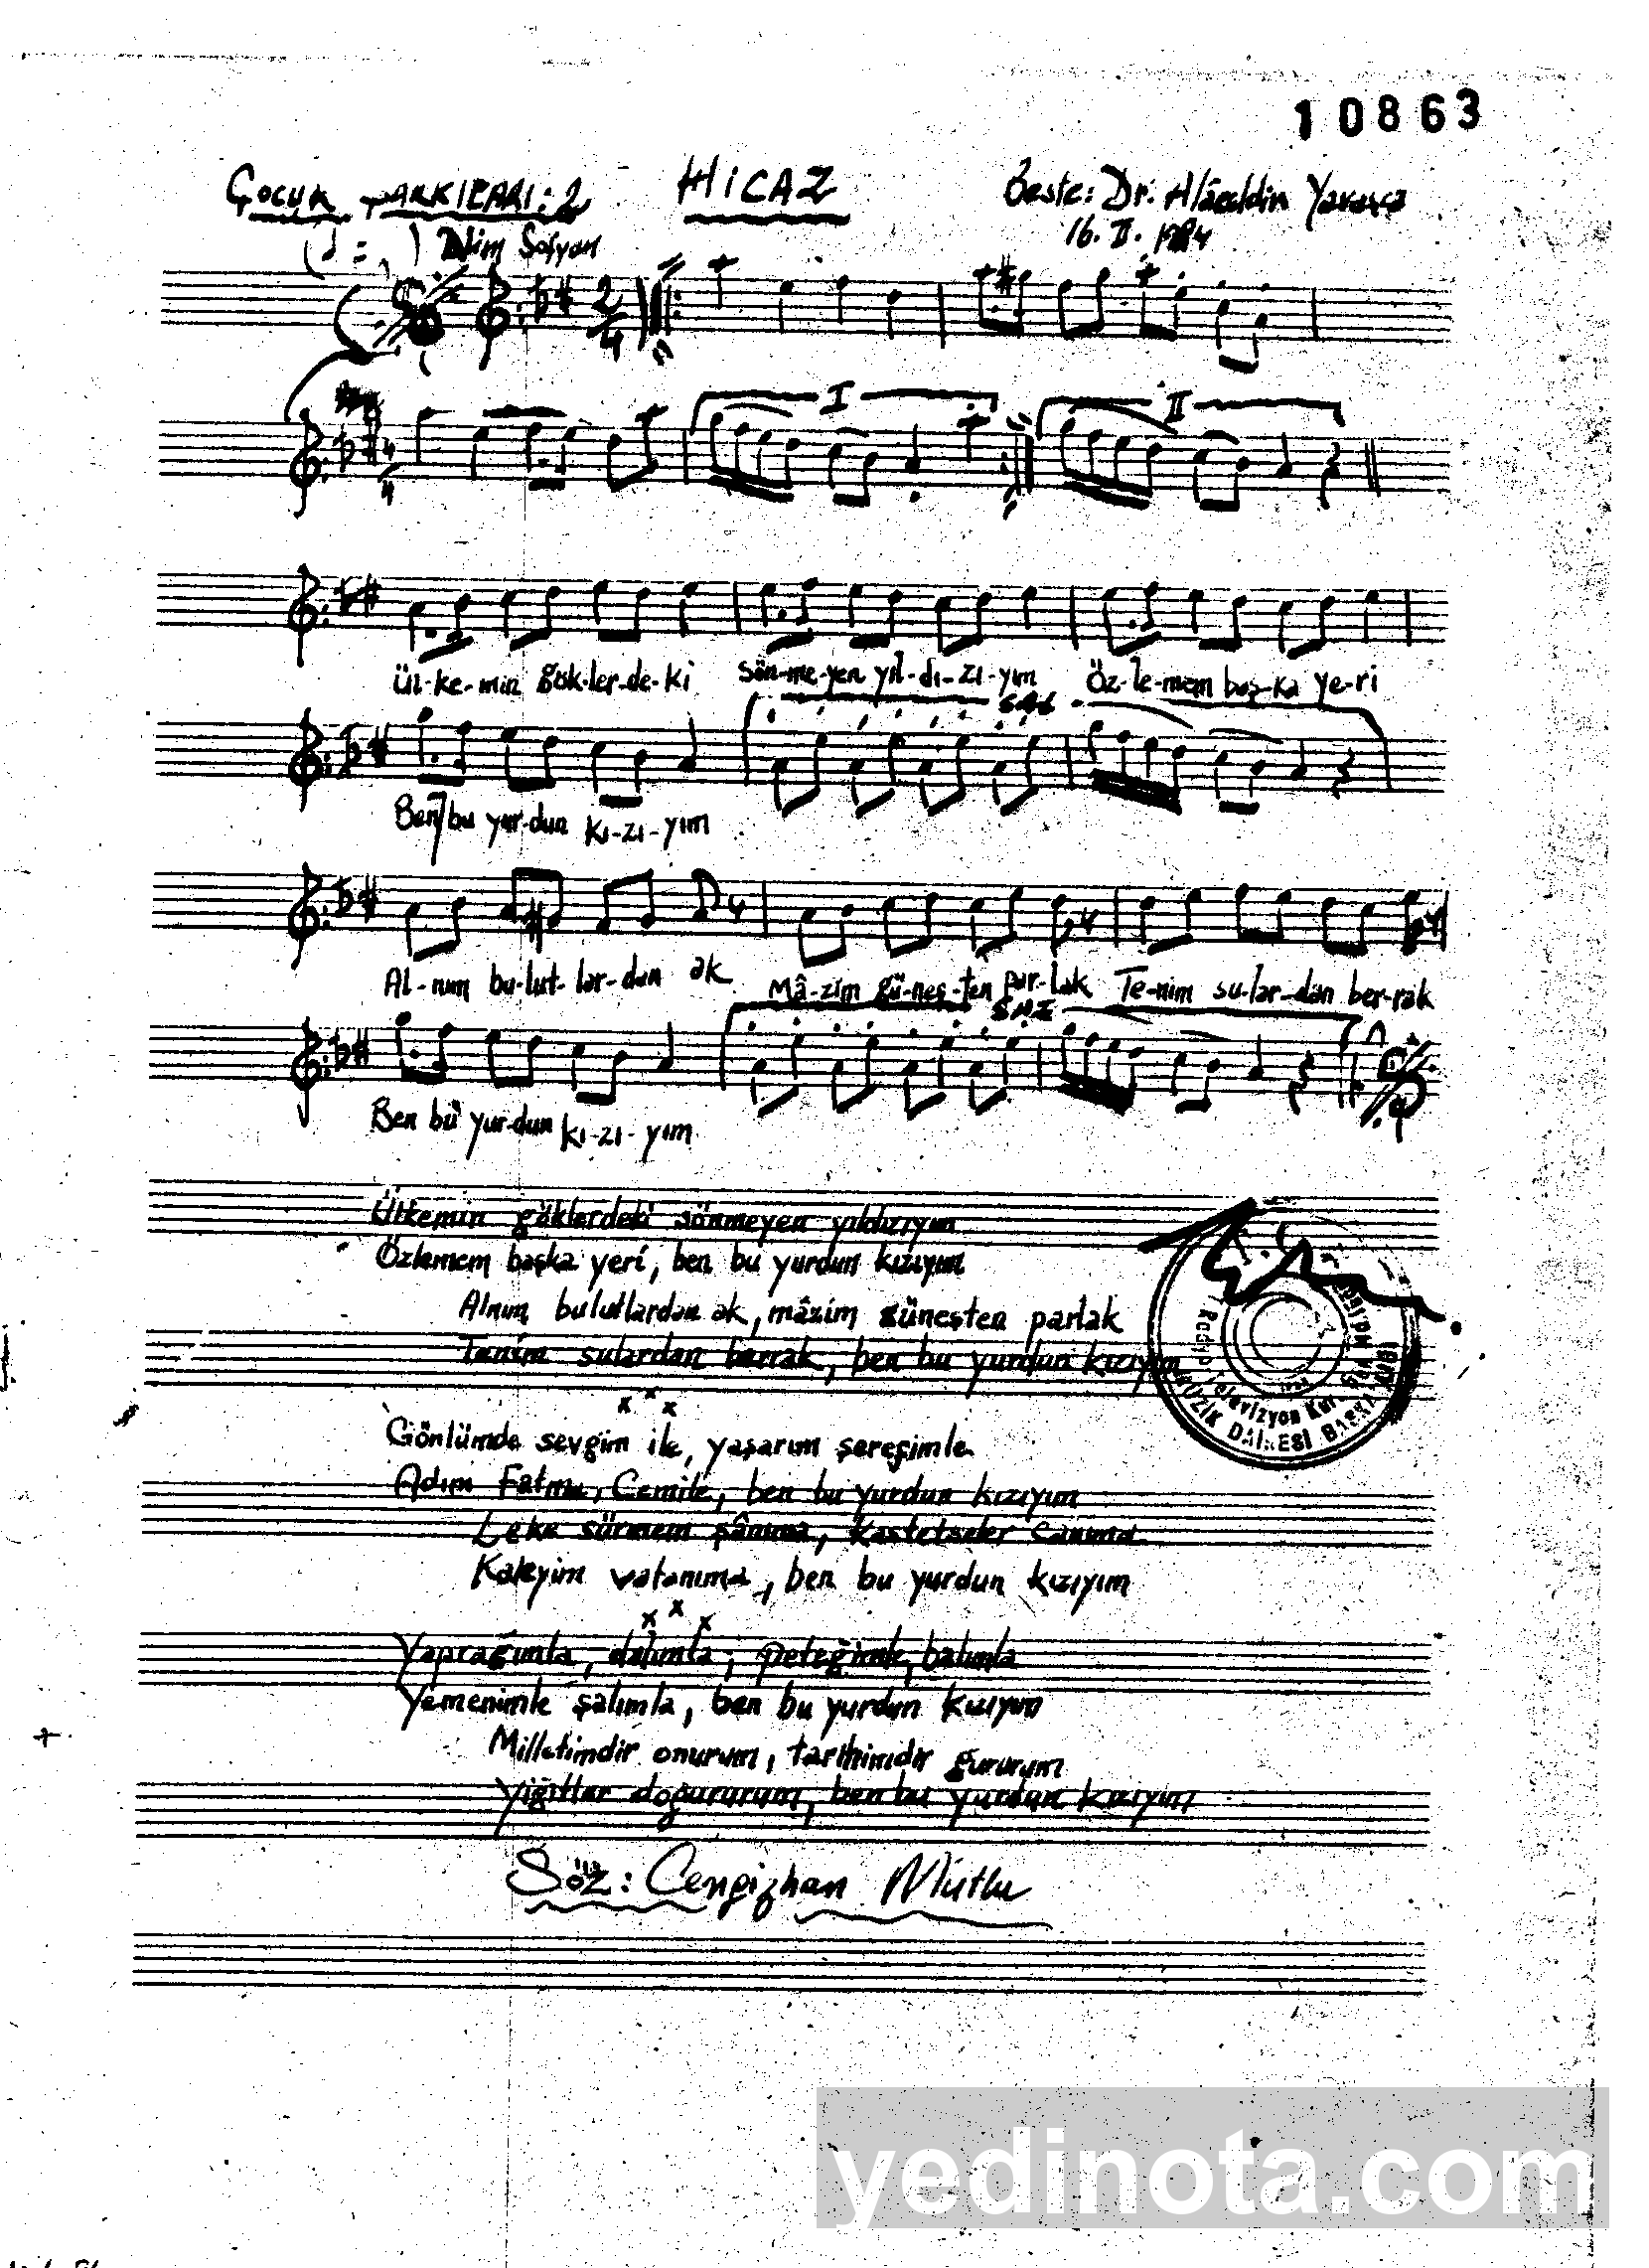 10863
Çocuk Şarkıları: 2
HİCAZ
Beste: Dr. Alâeddin Yavaşça
16. II. 1984
Sofyan
2/4
I
II
4/4
Ül-ke-min gök-ler-de-ki sön-me-yen yıl-dı-zı-yım Öz-le-mem baş-ka ye-ri
SAZ
Ben bu yur-dun kı-zı-yım
Al-nım bu-lut-lar-dan ak Mâ-zim gü-neş-ten par-lak Te-nim su-lar-dan ber-rak
SAZ
Ben bu yur-dun kı-zı-yım
Ülkemin göklerdeki sönmeyen yıldızıyım
Özlemem başka yeri, ben bu yurdun kızıyım
Alnım bulutlardan ak, mâzim güneşten parlak
Tenim sulardan berrak, ben bu yurdun kızıyım
x x x
Gönlümde sevgim ile, yaşarım şerefimle
Adım Fatma, Cemile, ben bu yurdun kızıyım
Leke sürmem şânıma, kastetseler canıma
Kaleyim vatanıma, ben bu yurdun kızıyım
x x x
Yaprağımla, dalımla, peteğimle, balımla
Yemenimle şalımla, ben bu yurdun kızıyım
Milletimdir onurum, tarihimdir gururum
Yiğitler doğururum, ben bu yurdun kızıyım
Söz: Cengizhan Mutlu
T.C.
Radyo Televizyon Kurumu
MÜZİK DAİRESİ
yedinota.com